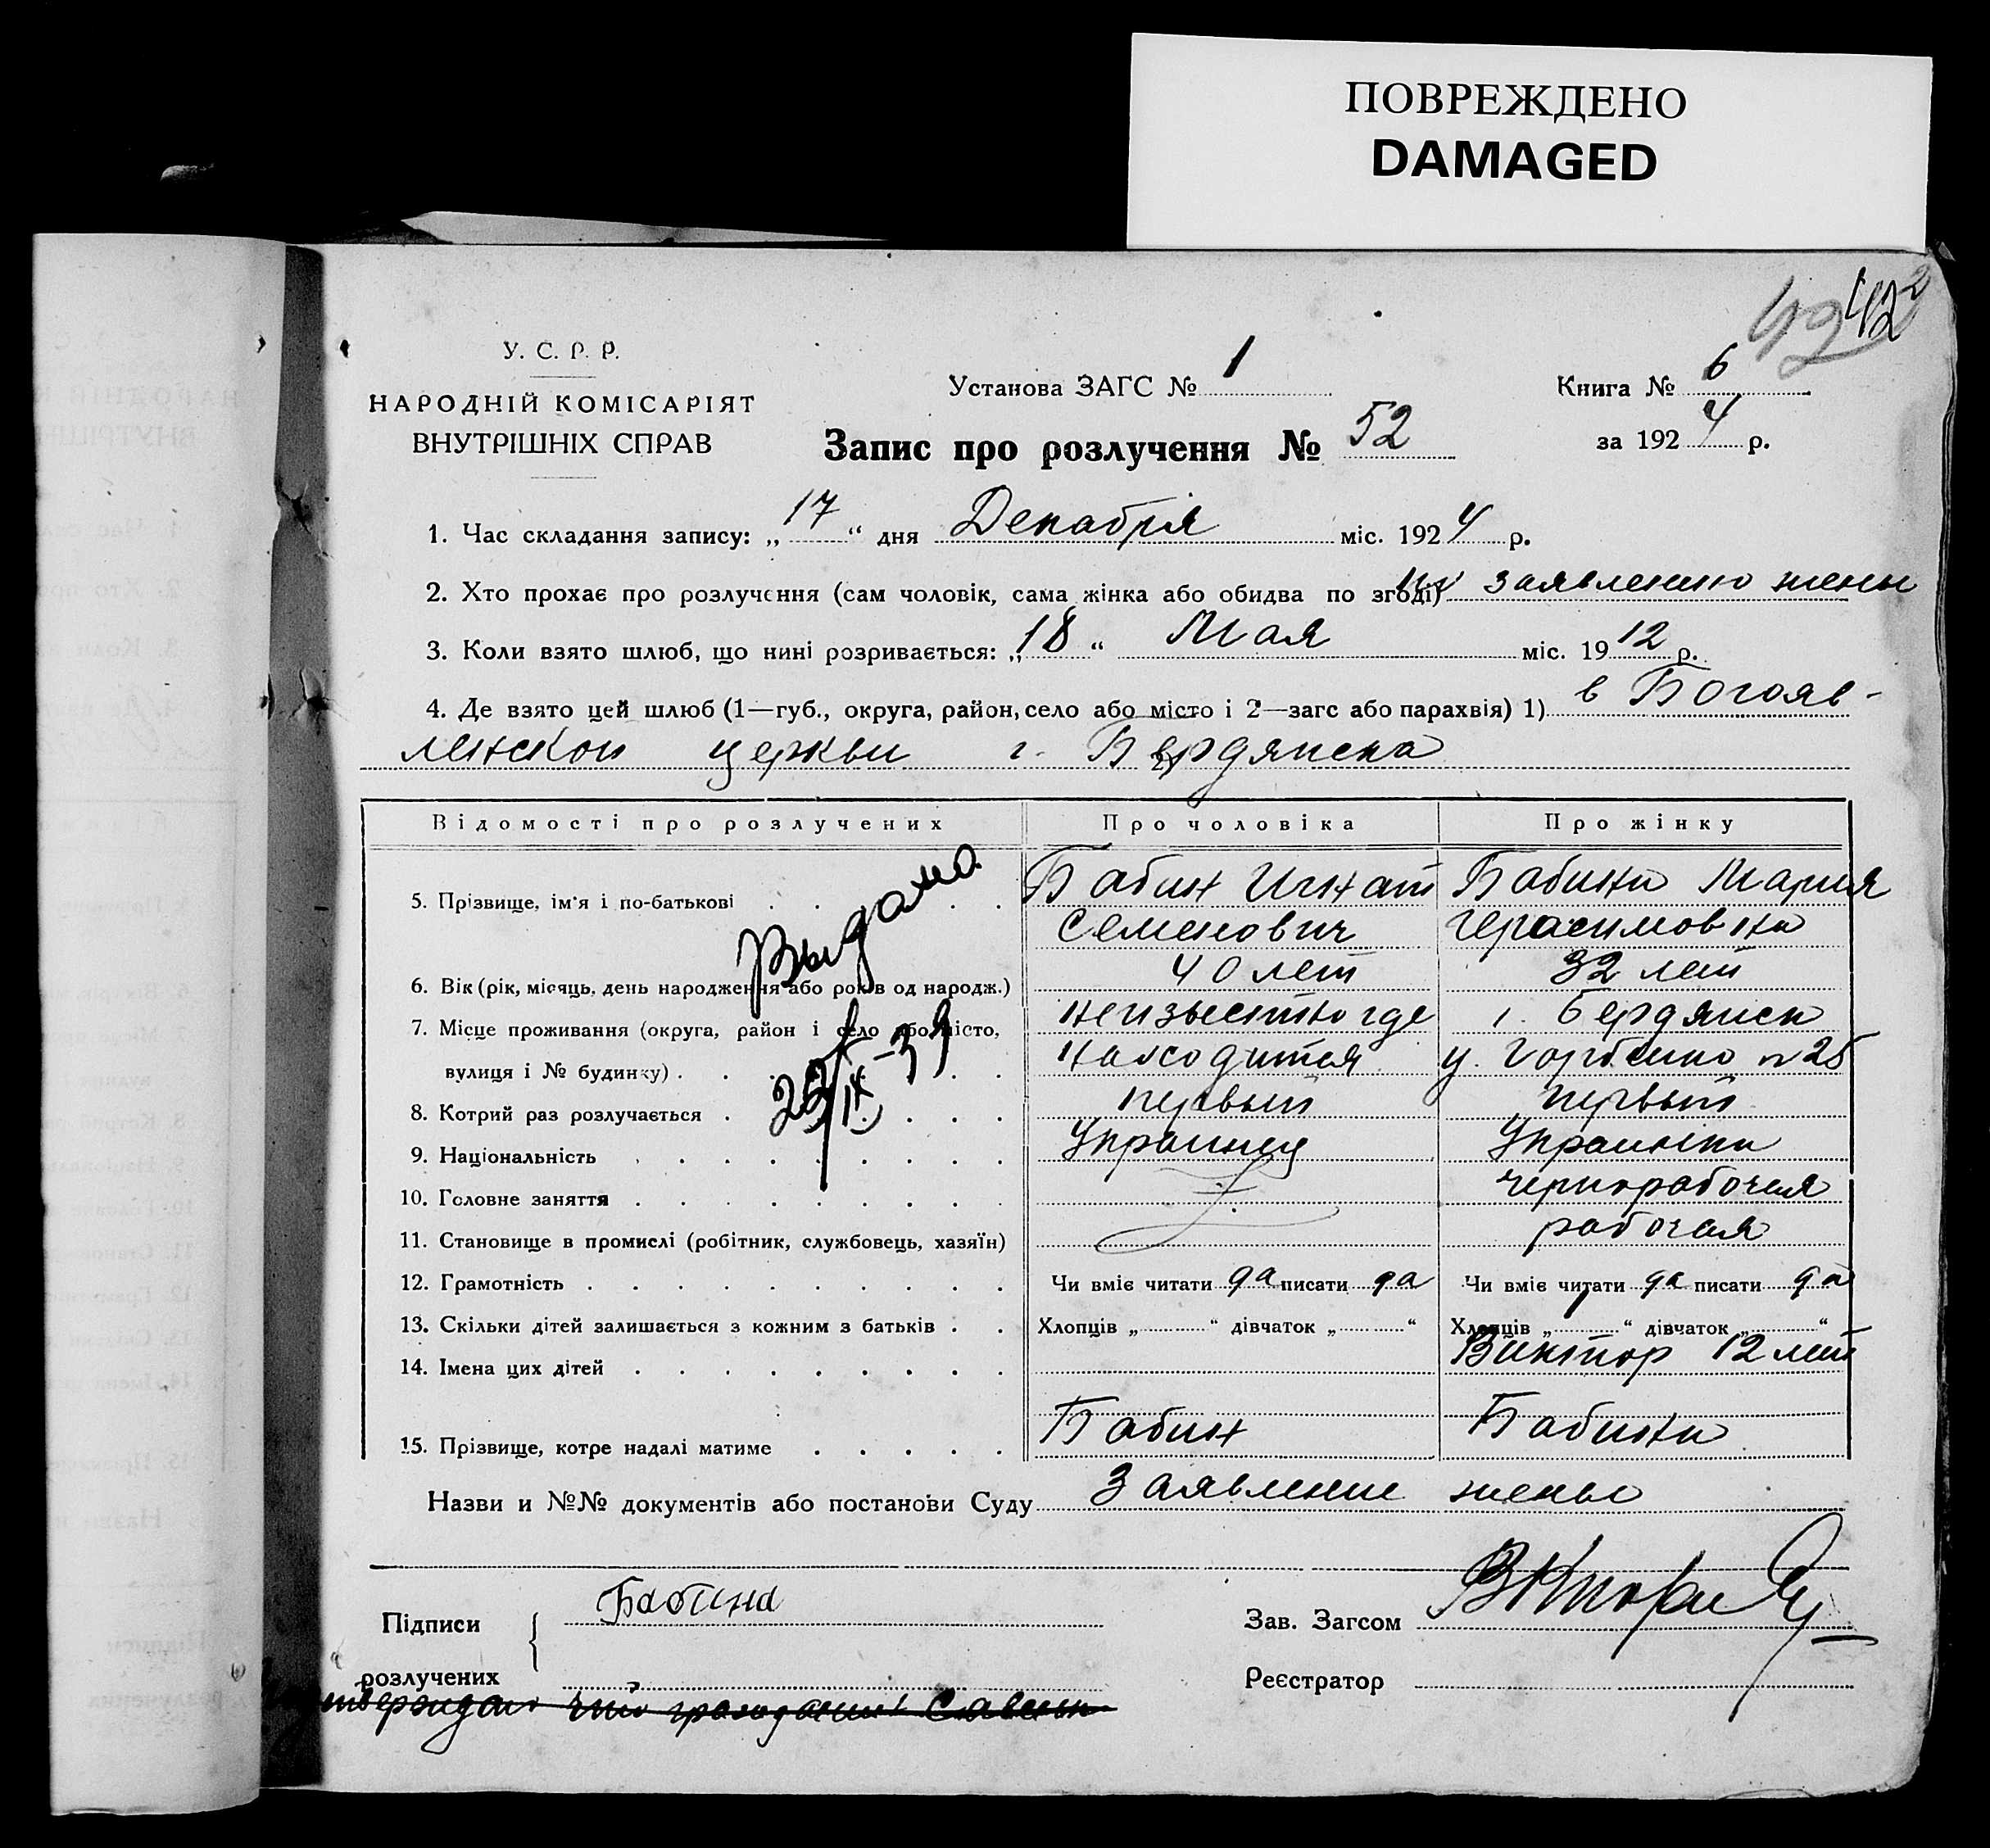 ПОВРЕЖДЕНО
DAMAGED
42
42
2
У. С. Р. Р.
НАРОДНІЙ КОМІСАРІЯТ
ВНУТРІШНІХ СПРАВ
Установа ЗАГС № 1
Книга № 6
за 1924 р.
Запис про розлучення № 52
1. Час складання запису: „17“ дня Декабря міс. 1924 р.
2. Хто прохає про розлучення (сам чоловік, сама жінка або обидва по згоді) заявлению жены
3. Коли взято шлюб, що нині розривається: „18“ Мая міс. 1912 р.
4. Де взято цей шлюб (1—губ., округа, район, село або місто і 2—загс або парахвія) 1) в Богояв-
ленской церкви г. Бердянска
Відомості про розлучених Про чоловіка Про жінку
5. Прізвище, ім'я і по-батькові Бабин Игнат Семенович Бабина Мария Герасимовна
6. Вік (рік, місяць, день народження або років од народж.) 40 лет 32 лет
7. Місце проживання (округа, район і село або місто, вулиця і № будинку) неизвестно где находится г. Бердянск у. №25
8. Котрий раз розлучається первый первый
9. Національність Украинец Украинка
10. Головне заняття чернорабочая
11. Становище в промислі (робітник, службовець, хазяїн) рабочая
12. Грамотність Чи вміє читати да писати да Чи вміє читати да писати да
13. Скільки дітей залишається з кожним з батьків Хлопців „ “ дівчаток „ “ Хлопців „ “ дівчаток „ “
14. Імена цих дітей Виктор 12 лет
15. Прізвище, котре надалі матиме Бабин Бабина
Выдано
Назви и №№ документів або постанови Суду Заявление жены
Підписи розлучених Бабина
Зав. Загсом
Реєстратор
что гражданин